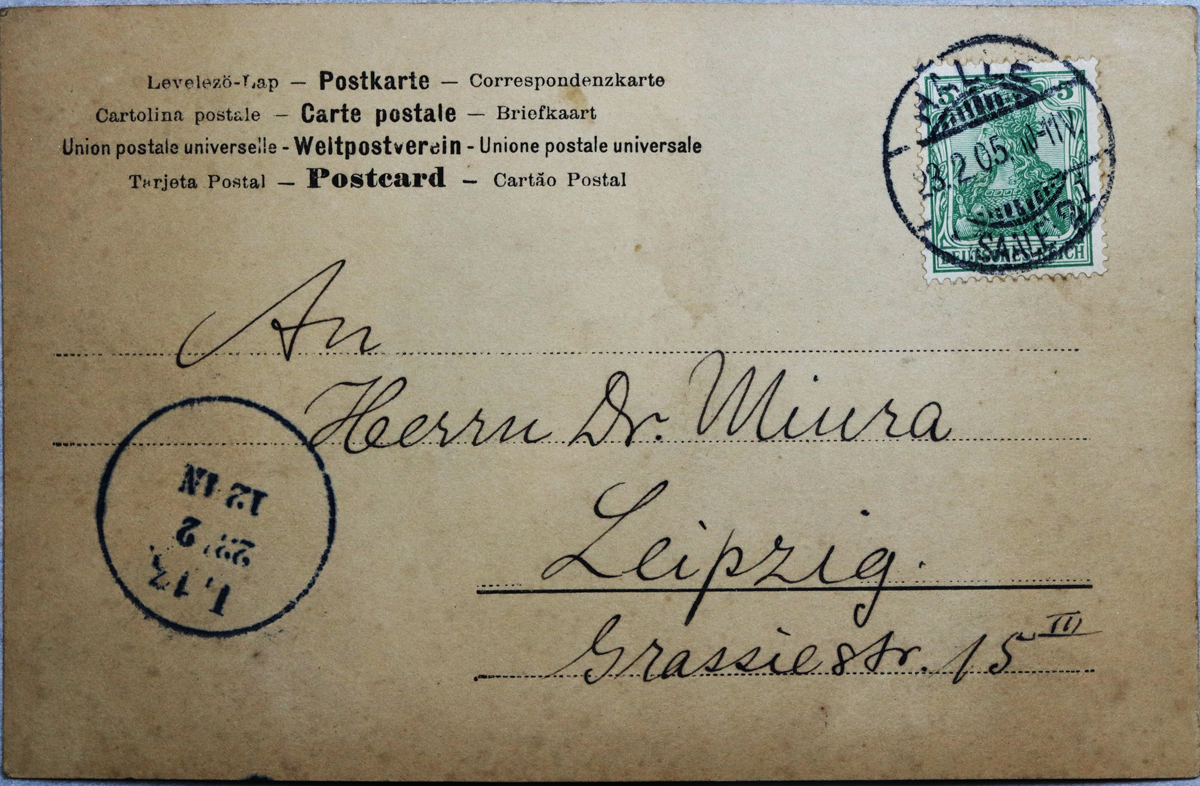 Levelező-Lap — Postkarte — Correspondenzkarte
Cartolina postale — Carte postale — Briefkaart
Union postale universelle - Weltpostverein - Unione postale universale
Tarjeta Postal — Postcard — Cartão Postal
5 5
HALLE
2.05. 10-11V
SAALE 2
DEUTSCHES REICH
An
Herrn Dr. Miura
Leipzig.
Grassiestr. 15 III
L. 13.
2
12-1N